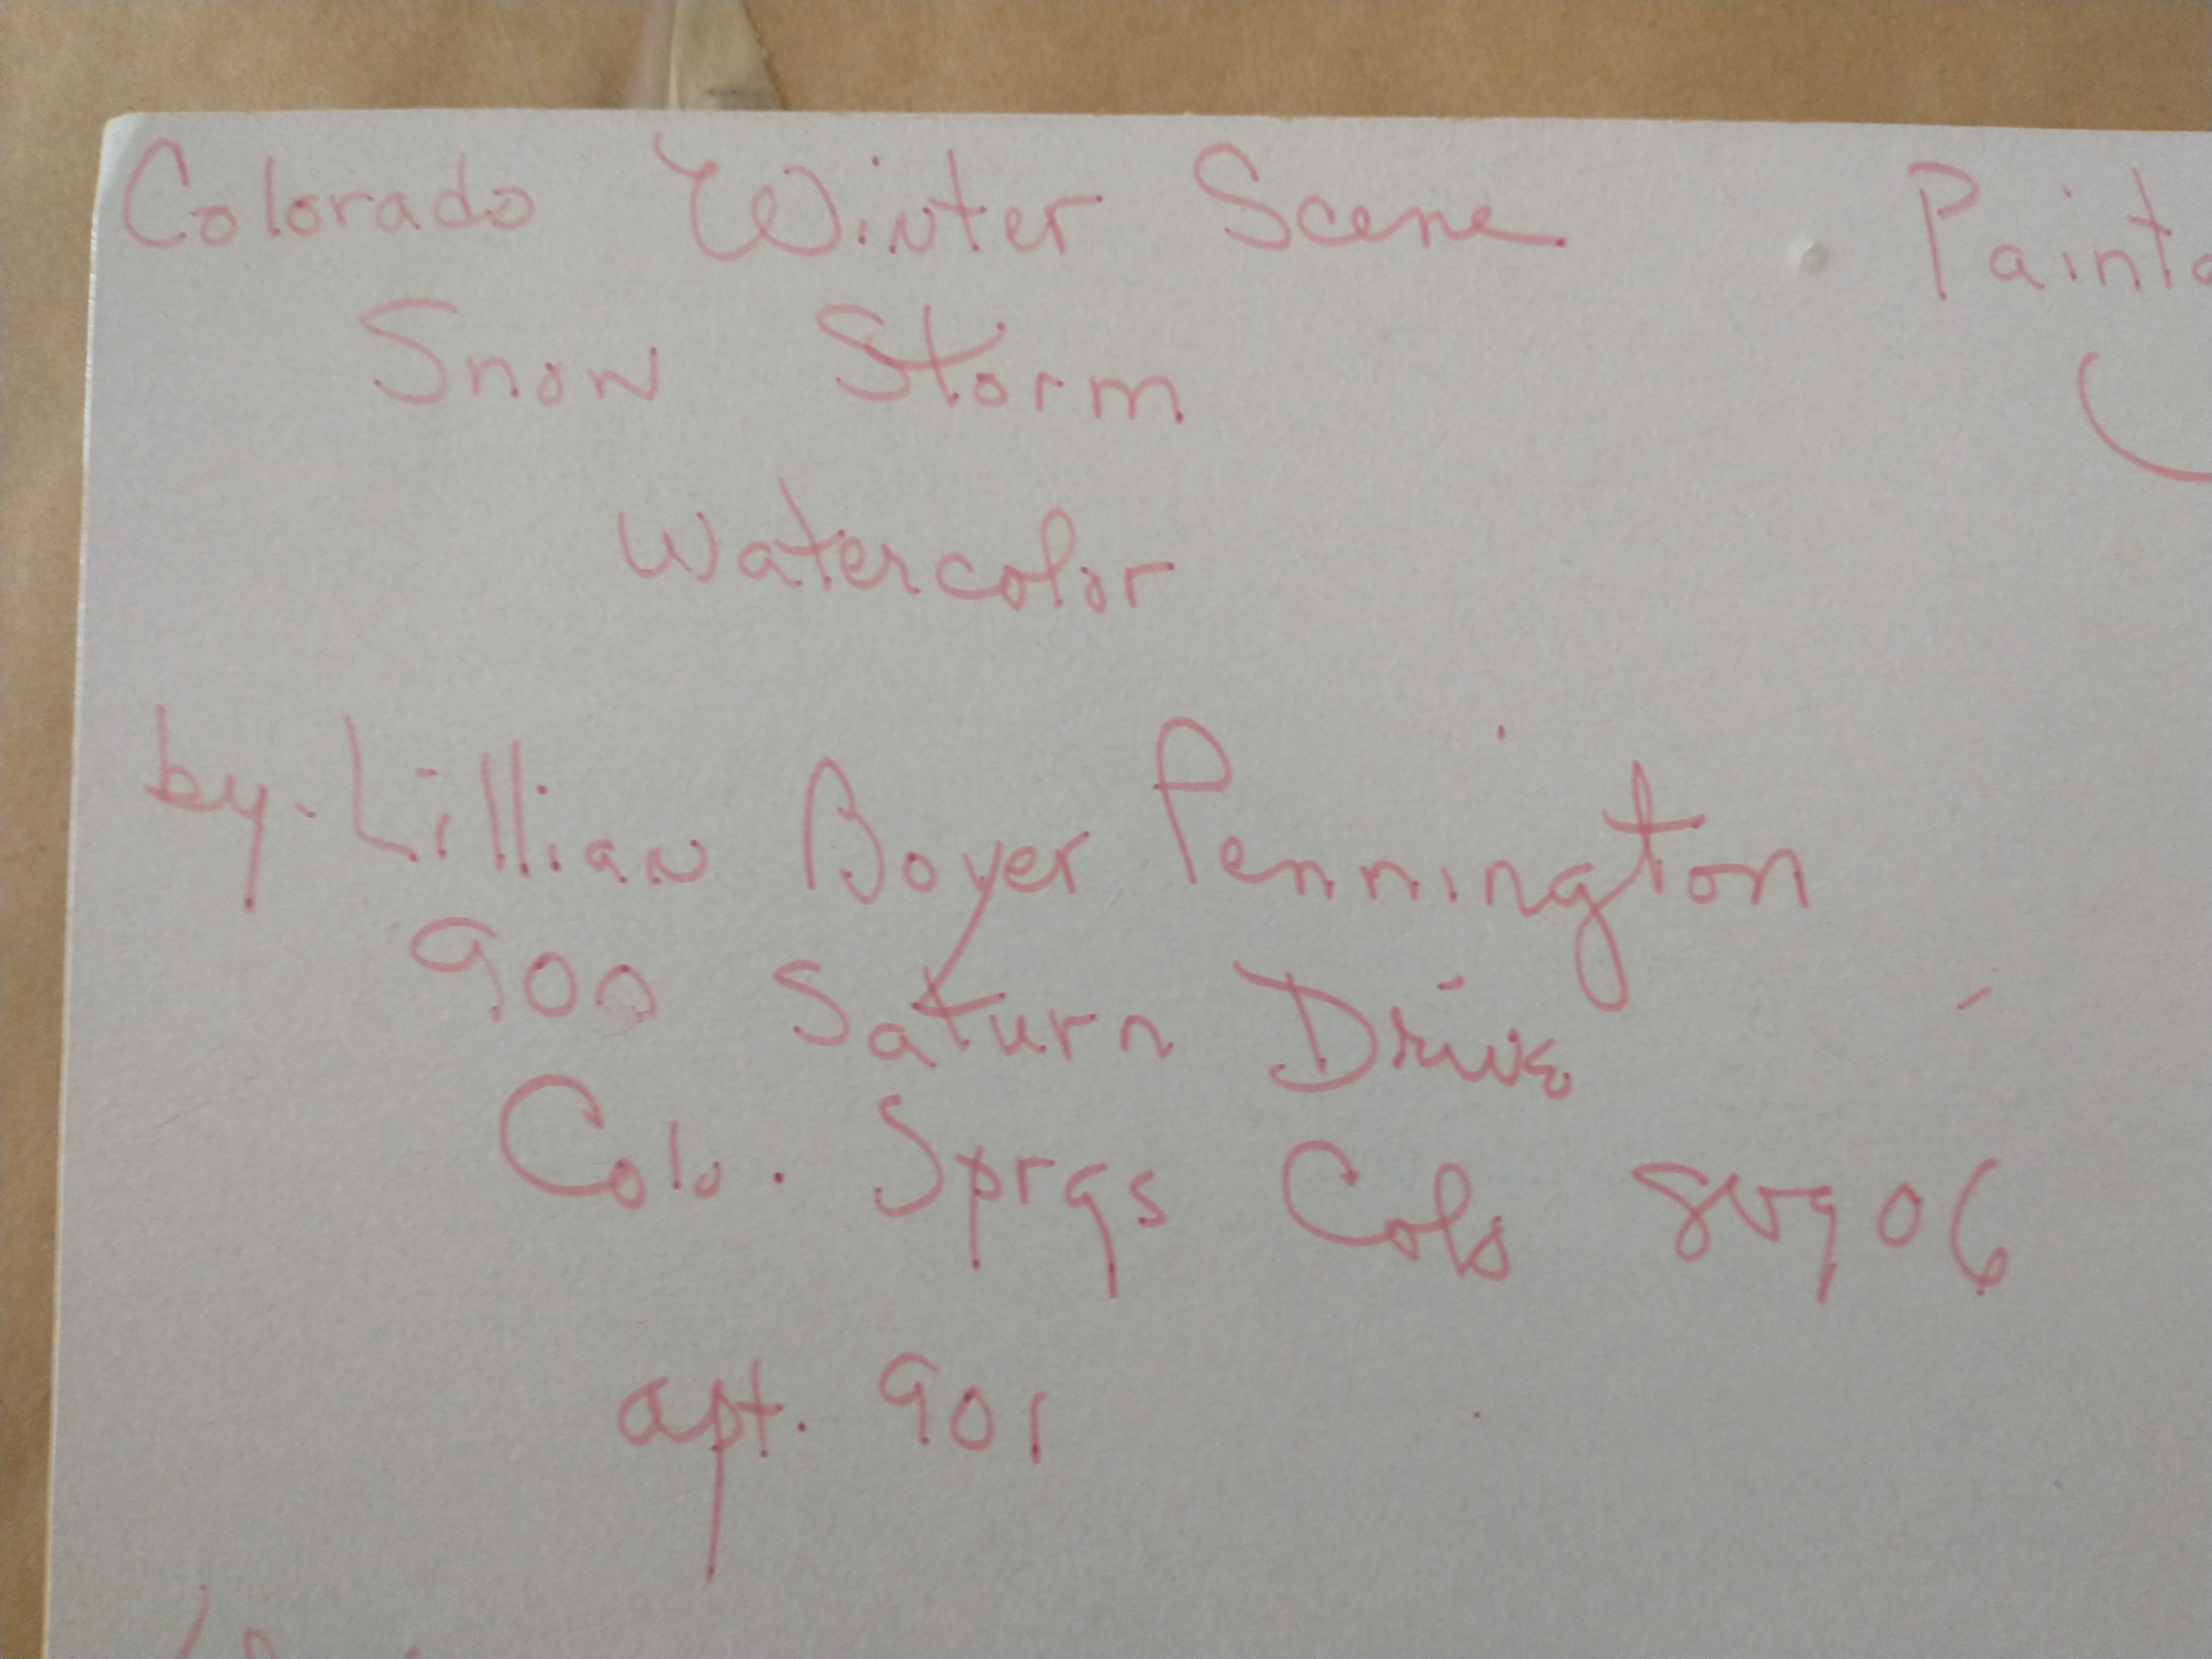 Colorado Winter Scene
Snow Storm
Watercolor
by. Lillian Boyer Pennington
900 Saturn Drive
Colo. Sprgs Colo 80906
apt. 901